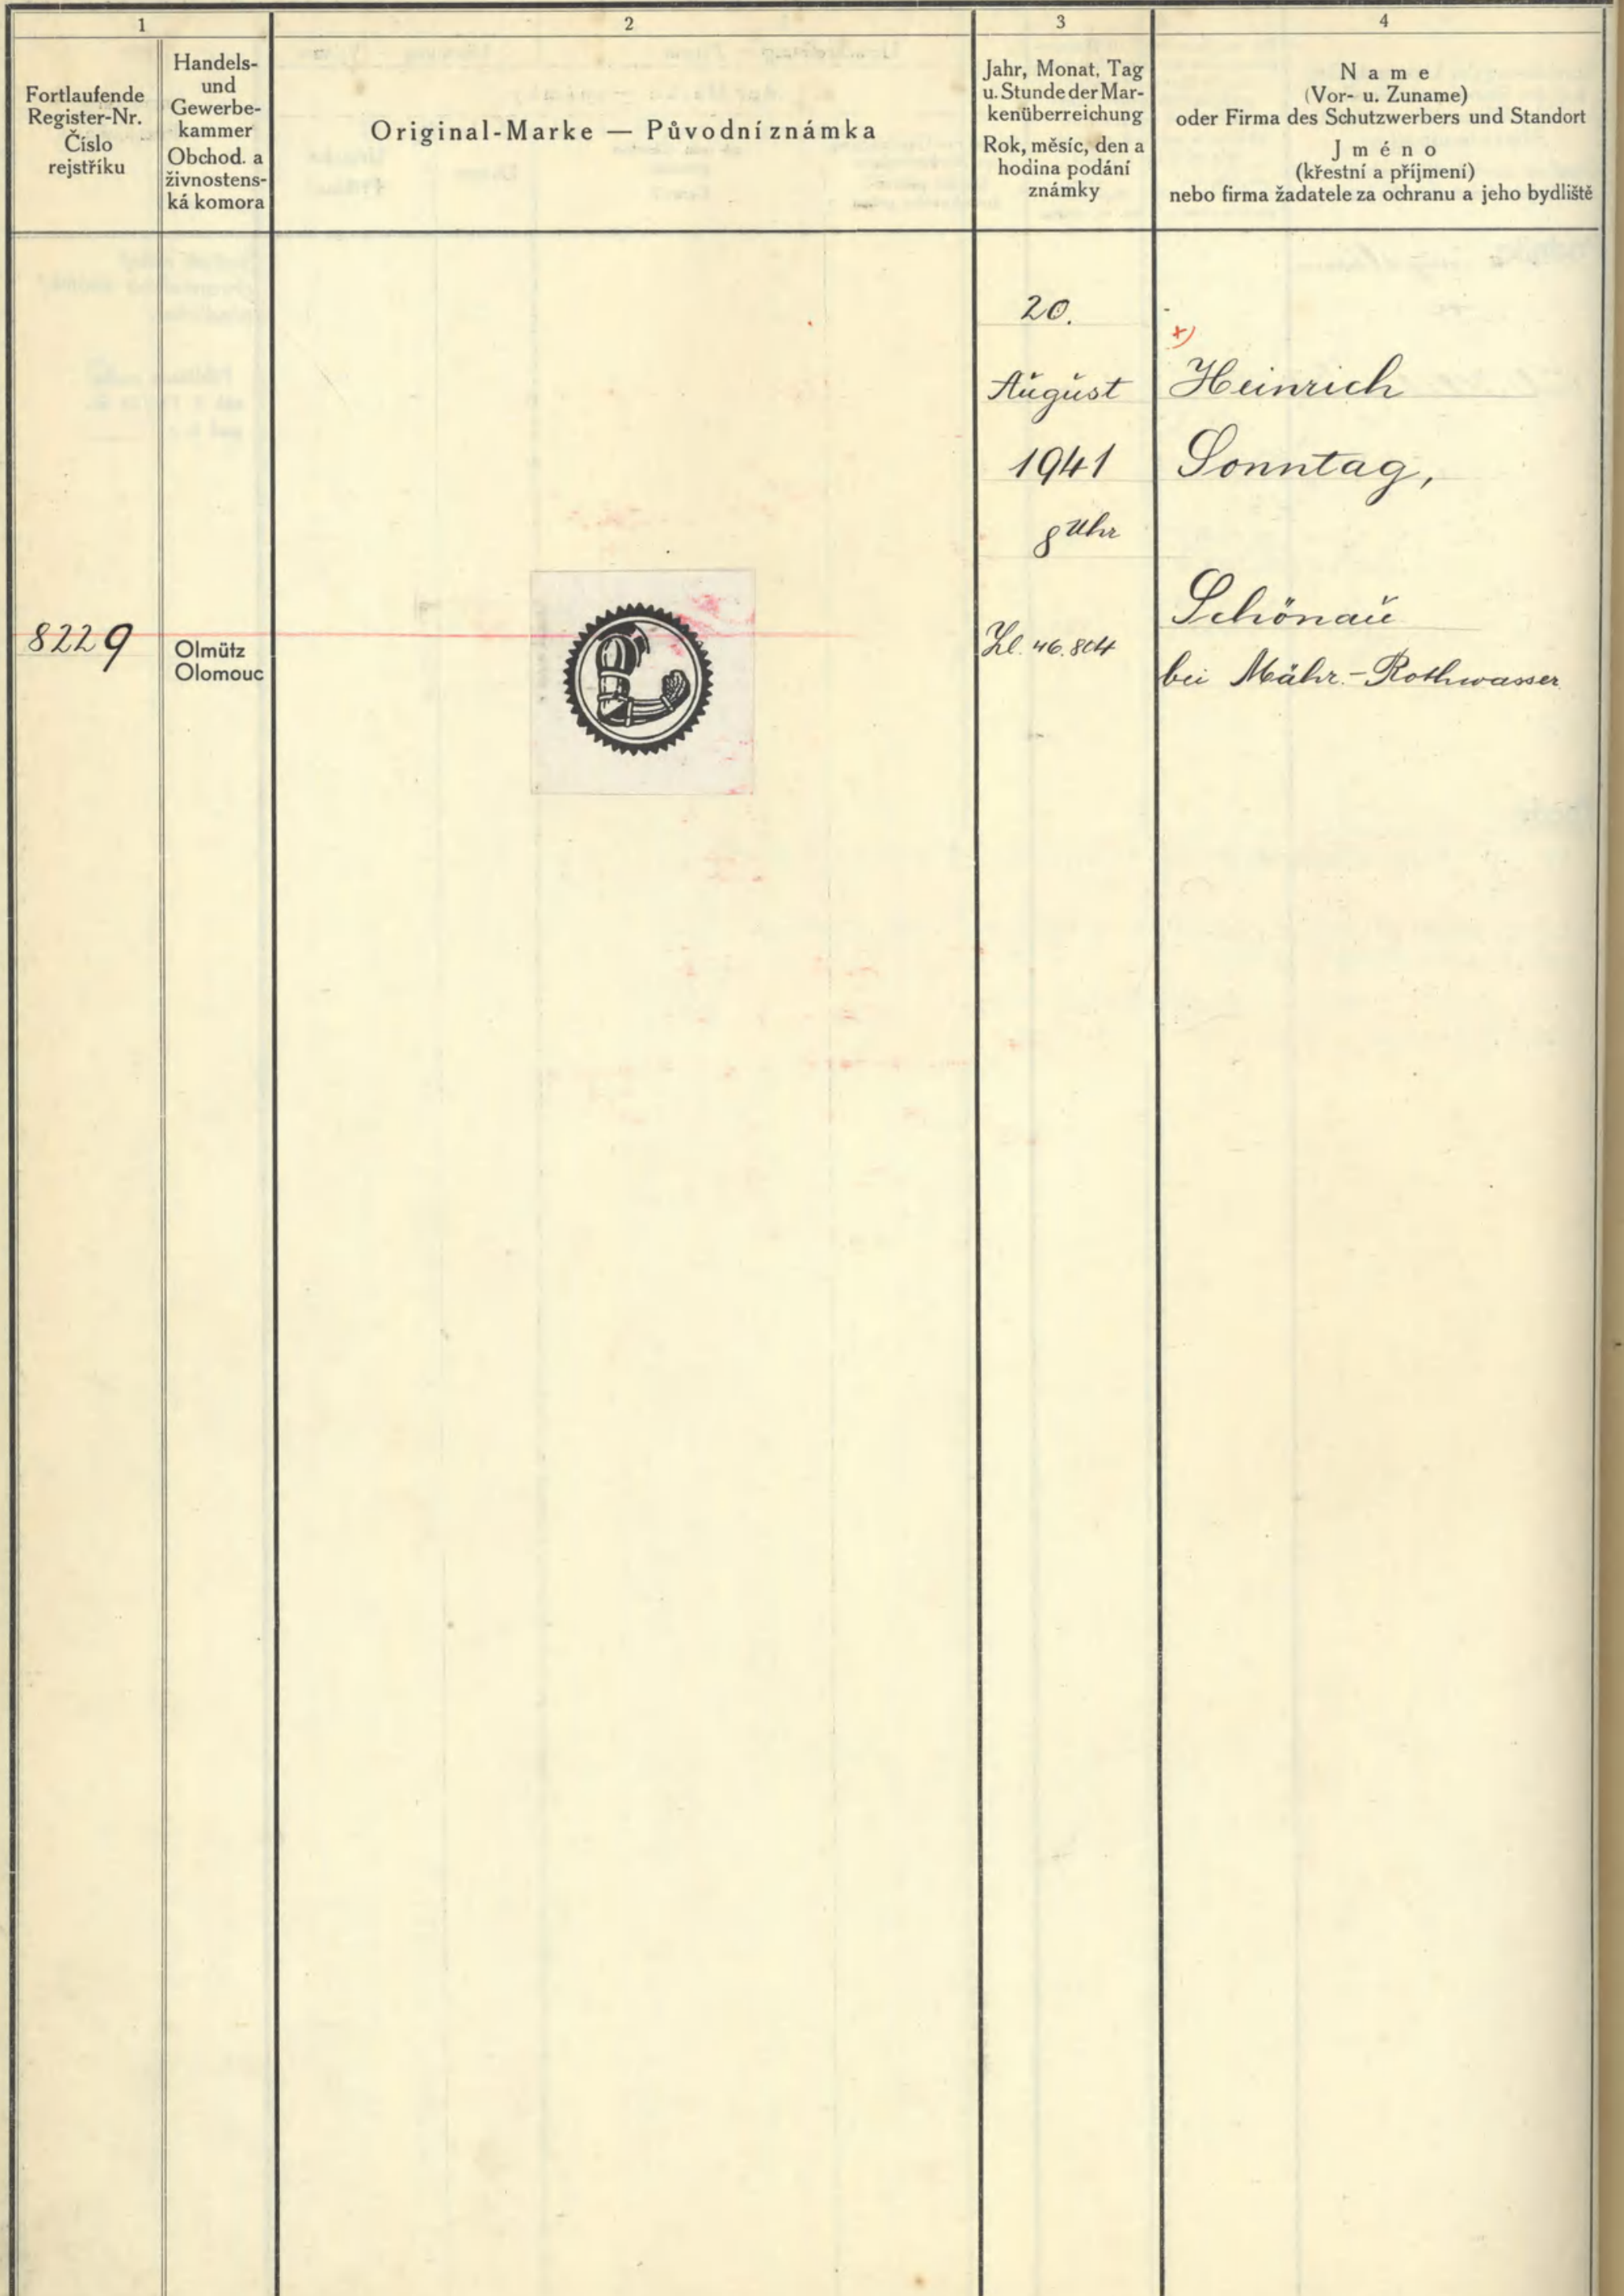 1
2
3
4
Fortlaufende
Register-Nr.
Číslo
rejstříku
Handels-
und
Gewerbe-
kammer
Obchod. a
živnostens-
ká komora
Original-Marke — Původní známka
Jahr, Monat, Tag
u. Stunde der Mar-
kenüberreichung
Rok, měsíc, den a
hodina podání
známky
Name
(Vor- u. Zuname)
oder Firma des Schutzwerbers und Standort
Jméno
(křestní a příjmení)
nebo firma žadatele za ochranu a jeho bydliště
20.
August
1941
8 Uhr
Zl. 46.804
x)
Heinrich
Sonntag,
Schönau
bei Mähr.-Rothwasser
8229
Olmütz
Olomouc